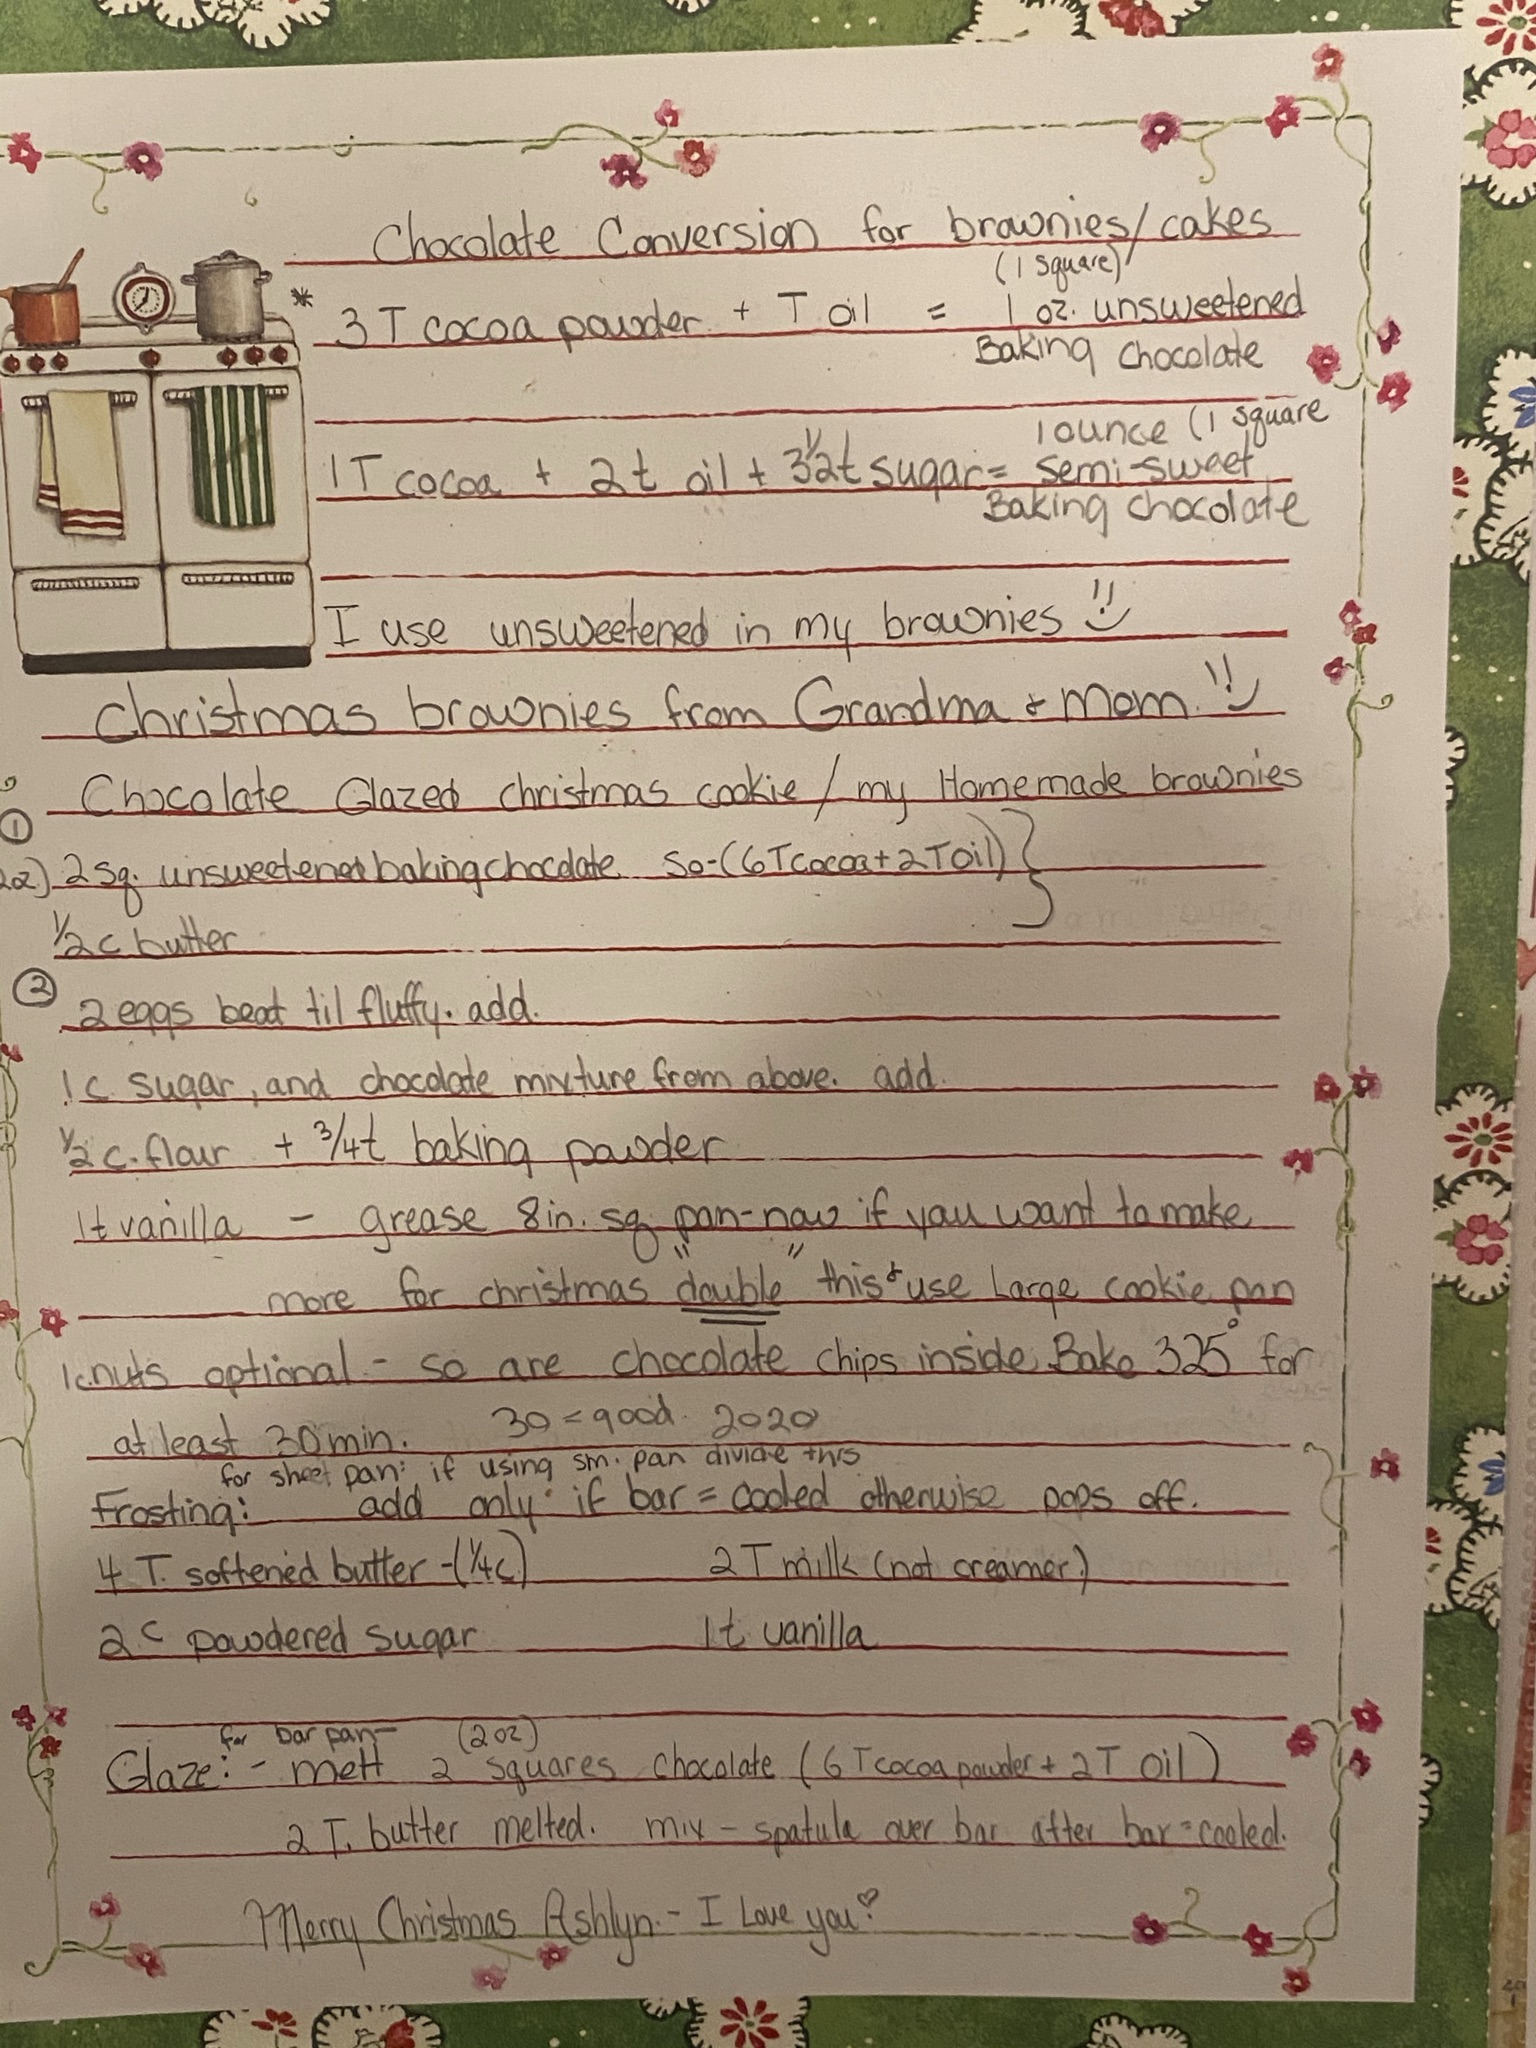 Chocolate Conversion for brownies/cakes
(1 square)
* 3 T cocoa powder + T oil = 1 oz. unsweetened
Baking chocolate
1 ounce (1 square
1 T cocoa + 2 t oil + 3 1/2 t sugar = semi-sweet
Baking chocolate
I use unsweetened in my brownies
Christmas brownies from Grandma & mom.
Chocolate Glazed christmas cookie / my Homemade brownies
①
2oz.) 2 sq. unsweetened baking chocolate so-(6 T cocoa + 2 T oil) }
1/2 c butter
② 2 eggs beat til fluffy. add.
1 c. sugar, and chocolate mixture from above. add.
1/2 c. flour + 3/4 t baking powder
1 t vanilla - grease 8 in. sq. pan-now if you want to make
more for christmas "double" this & use Large cookie pan
1c. nuts optional - so are chocolate chips inside. Bake 325° for
at least 30 min. 30 = good. 2020
for sheet pan: if using sm. pan divide this
Frosting: add only if bar = cooled otherwise pops off.
4 T. softened butter -(1/4 c) 2 T milk (not creamer.)
2 c powdered sugar 1 t vanilla
for bar pan- (2 oz)
Glaze: - melt 2 squares chocolate (6 T cocoa powder + 2 T oil)
2 T. butter melted. mix - spatula over bar after bar = cooled.
Merry Christmas Ashlyn. - I Love you! ♡